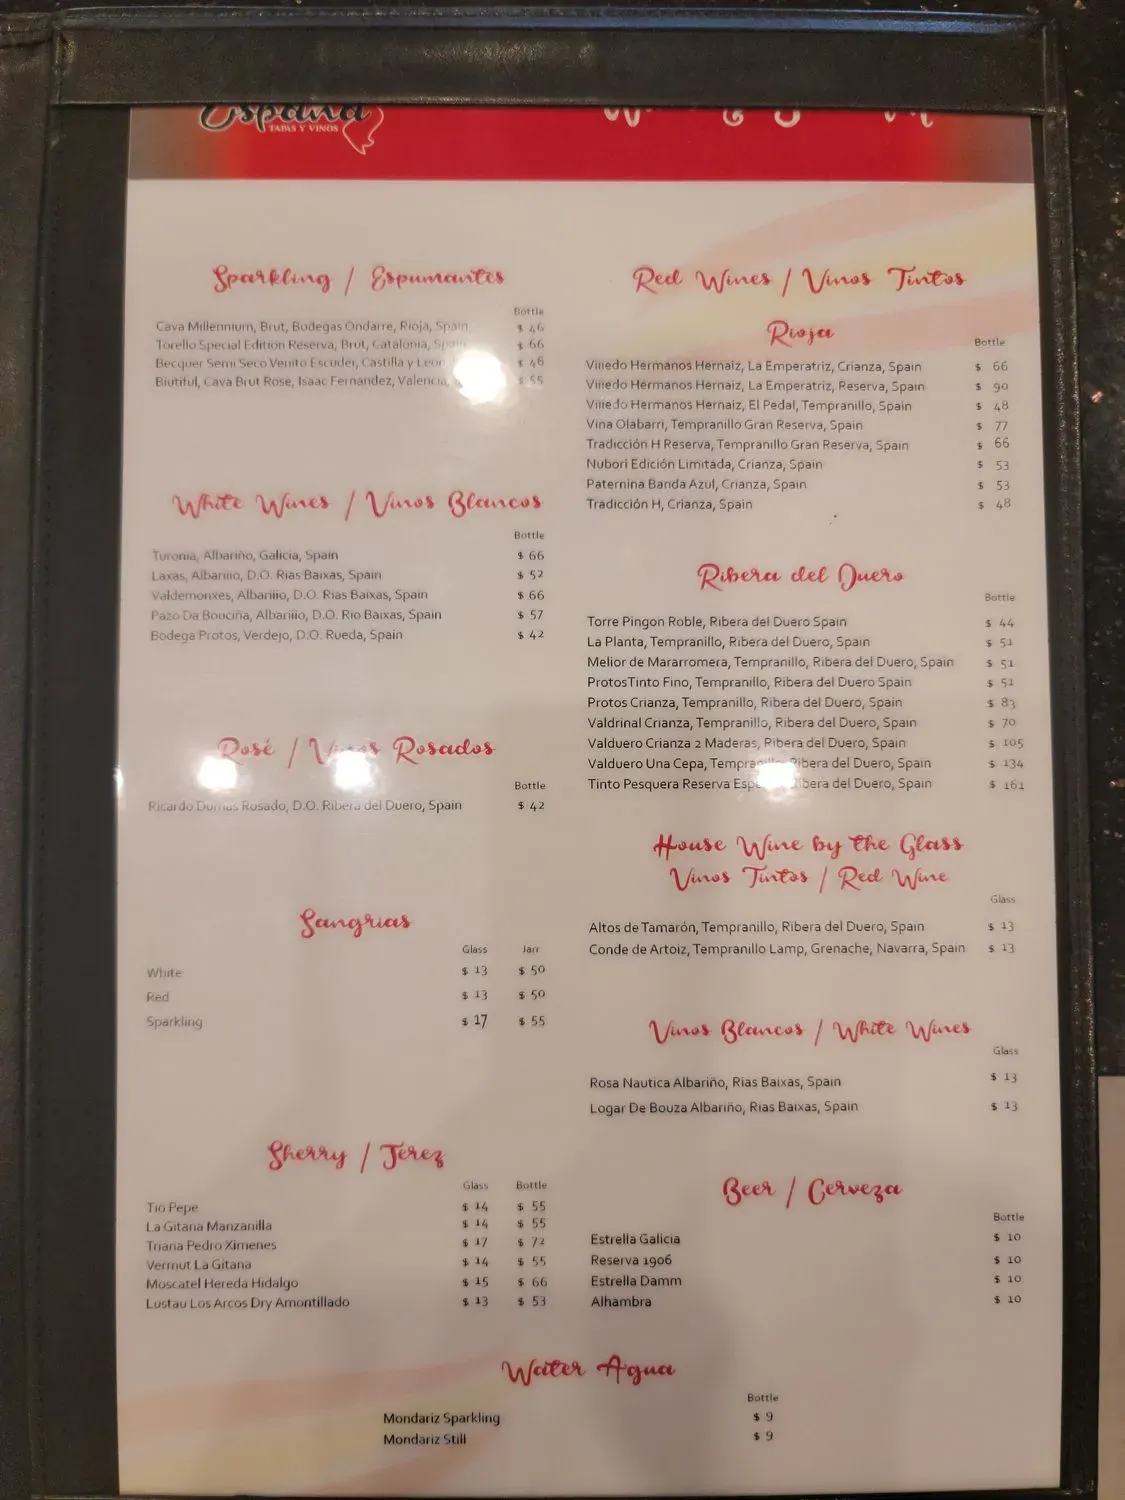 España
TAPAS Y VINOS
Sparkling / Espumantes
Bottle
Cava Millennium, Brut, Bodegas Ondarre, Rioja, Spain $ 46
Torello Special Edition Reserva, Brut, Catalonia, Spain $ 66
Becquer Semi Seco Venito Escuder, Castilla y Leon, $ 46
Biutiful, Cava Brut Rose, Isaac Fernandez, Valencia, $ 55
White Wines / Vinos Blancos
Bottle
Turonia, Albariño, Galicia, Spain $ 66
Laxas, Albariiio, D.O. Rias Baixas, Spain $ 52
Valdemonxes, Albariiio, D.O. Rias Baixas, Spain $ 66
Pazo Da Bouciña, Albariiio, D.O. Rio Baixas, Spain $ 57
Bodega Protos, Verdejo, D.O. Rueda, Spain $ 42
Rosé / Vinos Rosados
Bottle
Ricardo Dumas Rosado, D.O. Ribera del Duero, Spain $ 42
Sangrias
Glass Jarr
White $ 13 $ 50
Red $ 13 $ 50
Sparkling $ 17 $ 55
Sherry / Jerez
Glass Bottle
Tio Pepe $ 14 $ 55
La Gitana Manzanilla $ 14 $ 55
Triana Pedro Ximenes $ 17 $ 72
Vermut La Gitana $ 14 $ 55
Moscatel Hereda Hidalgo $ 15 $ 66
Lustau Los Arcos Dry Amontillado $ 13 $ 53
Red Wines / Vinos Tintos
Rioja
Bottle
Viiiedo Hermanos Hernaiz, La Emperatriz, Crianza, Spain $ 66
Viiiedo Hermanos Hernaiz, La Emperatriz, Reserva, Spain $ 90
Viiiedo Hermanos Hernaiz, El Pedal, Tempranillo, Spain $ 48
Vina Olabarri, Tempranillo Gran Reserva, Spain $ 77
Tradicción H Reserva, Tempranillo Gran Reserva, Spain $ 66
Nubori Edición Limitada, Crianza, Spain $ 53
Paternina Banda Azul, Crianza, Spain $ 53
Tradicción H, Crianza, Spain $ 48
Ribera del Duero
Bottle
Torre Pingon Roble, Ribera del Duero Spain $ 44
La Planta, Tempranillo, Ribera del Duero, Spain $ 51
Melior de Mararromera, Tempranillo, Ribera del Duero, Spain $ 51
ProtosTinto Fino, Tempranillo, Ribera del Duero Spain $ 51
Protos Crianza, Tempranillo, Ribera del Duero, Spain $ 83
Valdrinal Crianza, Tempranillo, Ribera del Duero, Spain $ 70
Valduero Crianza 2 Maderas, Ribera del Duero, Spain $ 105
Valduero Una Cepa, Tempranillo, Ribera del Duero, Spain $ 134
Tinto Pesquera Reserva Ribera del Duero, Spain $ 161
House Wine by the Glass
Vinos Tintos / Red Wine
Glass
Altos de Tamarón, Tempranillo, Ribera del Duero, Spain $ 13
Conde de Artoiz, Tempranillo Lamp, Grenache, Navarra, Spain $ 13
Vinos Blancos / White Wines
Glass
Rosa Nautica Albariño, Rias Baixas, Spain $ 13
Logar De Bouza Albariño, Rias Baixas, Spain $ 13
Beer / Cerveza
Bottle
Estrella Galicia $ 10
Reserva 1906 $ 10
Estrella Damm $ 10
Alhambra $ 10
Water Agua
Bottle
Mondariz Sparkling $ 9
Mondariz Still $ 9